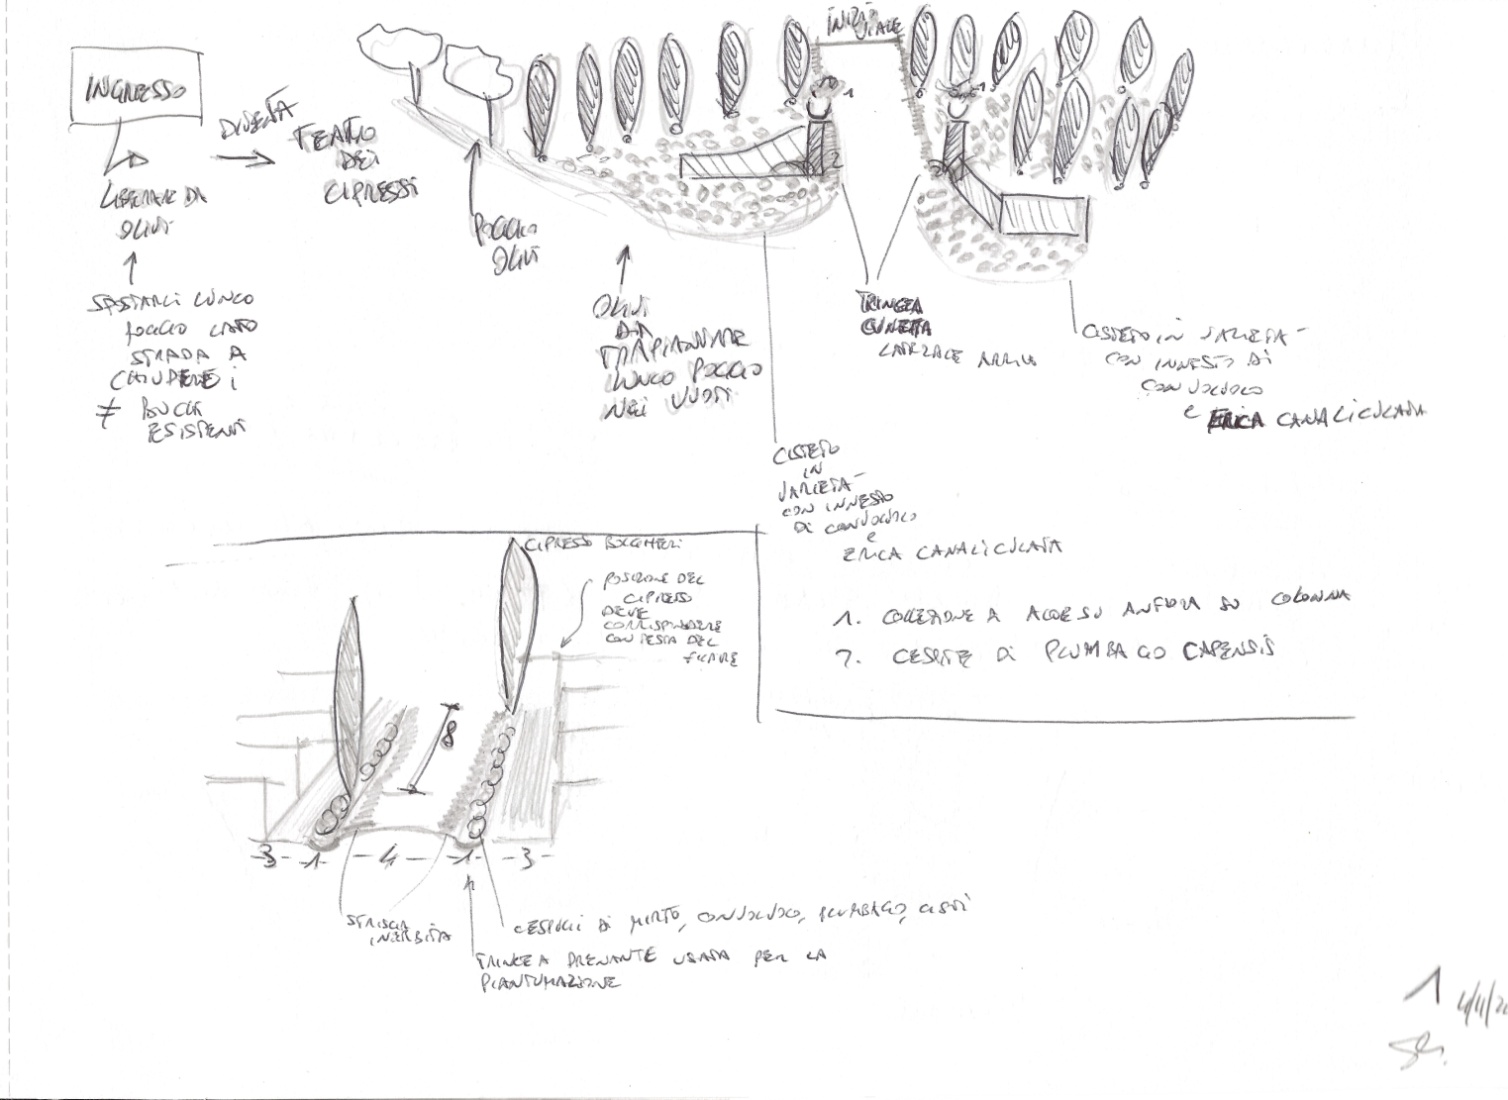 INGRESSO
LIBERARE DA
OLIVI
SPOSTARLI LUNGO
POGGIO LATO
STRADA A
CHIUDERE I
≠ BUCHI
ESISTENTI
DIVENTA
TEATRO
DEI
CIPRESSI
POGGIO
OLIVI
OLIVI
DA
TRAPIANTARE
LUNGO POGGIO
NEI VUOTI
INIZIO
VIALE
1
2
1
2
TRINCEA
CUNETTA
LATERALE
CISTETO IN VARIETA'
CON INNESTO DI
CONVOLVOLO
E ERICA CANALICULATA
CISTETO
IN
VARIETA'
CON INNESTO
DI CONVOLVOLO
E
ERICA CANALICULATA
1. COLLEZIONE A ALOE SU ANFORA SU COLONNA
2. CESPITE DI PLUMBAGO CAPENSIS
CIPRESSO BOLGHERI
POSIZIONE DEL
CIPRESSO
DEVE
CORRISPONDERE
CON TESTA DEL
FILARE
8
3 - 1 - 4 - 1 - 3
STRISCIA
INERBITA
CESPUGLI DI MIRTO, CONVOLVOLO, PLUMBAGO, CISTI
TRINCEA DRENANTE USATA PER LA
PIANTUMAZIONE
1